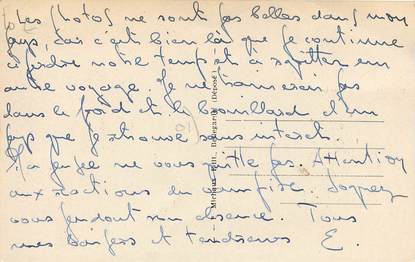 Les photos ne sont pas belles dans mon
pays, car c'est bien là que je continue
à perdre notre temps et à sortir en
autre voyage. Je ne pas
dans le froid et le brouillard d'un
pays que je trouve sans interet.
Ma pensée ne vous quitte pas. Attention
aux du Soignez
vous pendant mon absence. Tous
mes baisers et tendresses E.
Michaux Edit. Bellegarde (Déposé)